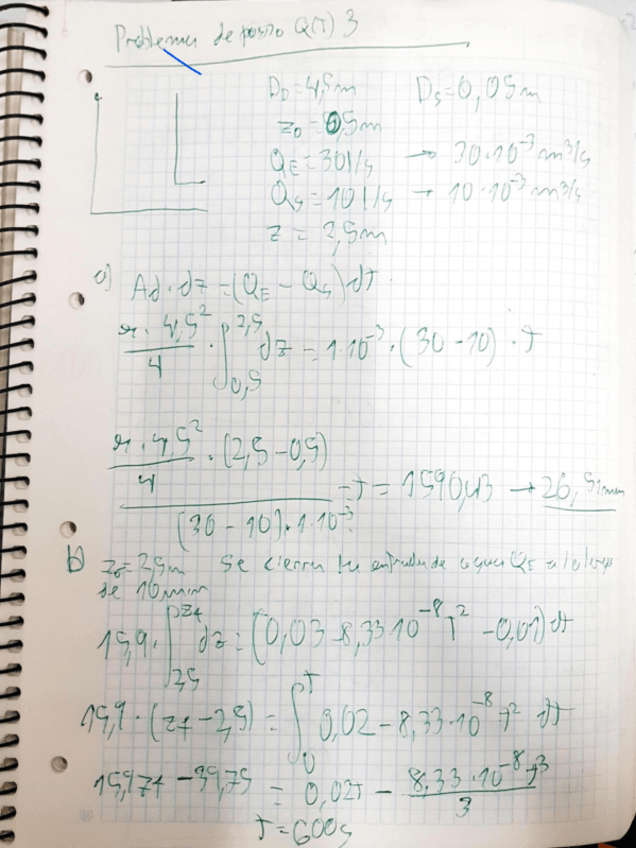 Problema deposito Q(T) 3
D_D = 4,5m D_S = 0,05m
z_0 = 0,5m
Q_E = 30 l/s → 30·10^-3 m³/s
Q_S = 10 l/s → 10·10^-3 m³/s
z = 2,5m
a) Ad · dz = (Q_E - Q_S) dt
π · 4,5² / 4 · ∫_{0,5}^{2,5} dz = 1·10^-3 · (30 - 10) · t
(π · 4,5² / 4 · (2,5 - 0,5)) / ((30 - 10) · 1·10^-3) = t = 1590,43 → 26,51 min
b) z_0 = 2,5m Se cierra la entrada de agua Q_E
de 10 min
15,9 · ∫_{2,5}^{z_t} dz = (0,03 - 8,33·10^-8 t² - 0,01) dt
15,9 · (z_t - 2,5) = ∫_0^t 0,02 - 8,33·10^-8 t² dt
15,9 z_t - 39,75 = 0,02t - 8,33·10^-8 t³ / 3
t = 600s